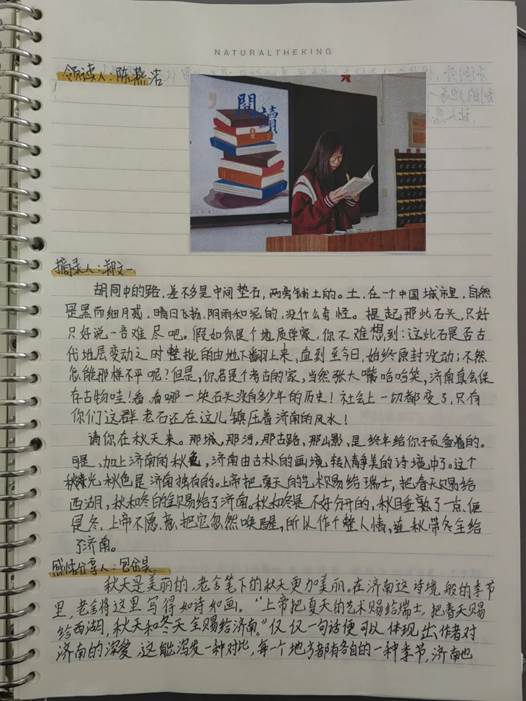 NATURALTHEKING
领读人：陈燕洁
閱讀
摘录人：郑文一
胡同中的路，差不多是中间垫石，两旁铺土的。土，在一个中国城市里，自然
是黑而细月爽，晴日飞扬，阴雨和泥的，没什么奇怪。提起那些石头，只好
只好说一言难尽吧。假如你是个地质学家，你不难想到：这些石是否古
代地层变动之时整批的由地下翻上来，直到至今日，始终原封没动；不然，
怎能那样不平呢？但是，你若是个考古的家，当然张大嘴哈哈笑，济南真会保
存古物哇！看，看哪一块石头没有多少年的历史！社会上一切都变了，只有
你们这群老石还在这儿镇压着济南的风水！
请你在秋天来。那城，那河，那古路，那山影，是终年给你预备着的。
可是，加上济南的秋色，济南由古朴的画境转入静美的诗境中了。这个
秋光秋色是济南独有的。上帝把夏天的艺术赐给瑞士，把春天的赐给
西湖，秋和冬的全赐给了济南。秋和冬是不好分开的，秋睡熟了一点便
是冬，上帝不愿意把它忽然唤醒，所以作个整人情，连秋带冬全给
了济南。
感悟分享人：
秋天是美丽的，老舍笔下的秋天更加美丽。在济南这诗境一般的季节
里，老舍将这里写得如诗如画。“上帝把夏天的艺术赐给瑞士，把春天赐
给西湖，秋天和冬天全赐给济南。”仅仅一句话便可以体现出作者对
济南的深爱，这能深发一种对比，每一个地方都有各自的一种季节，济南也